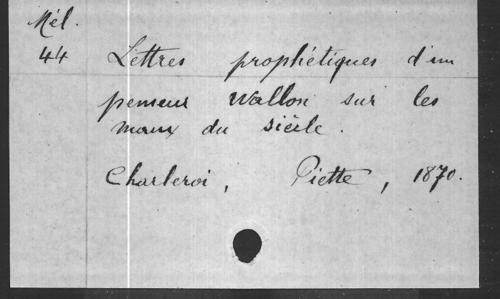 Mél.
44 Lettres prophétiques d'un
penseur Wallon sur les
maux du siècle.
Charleroi, Piette, 1870.